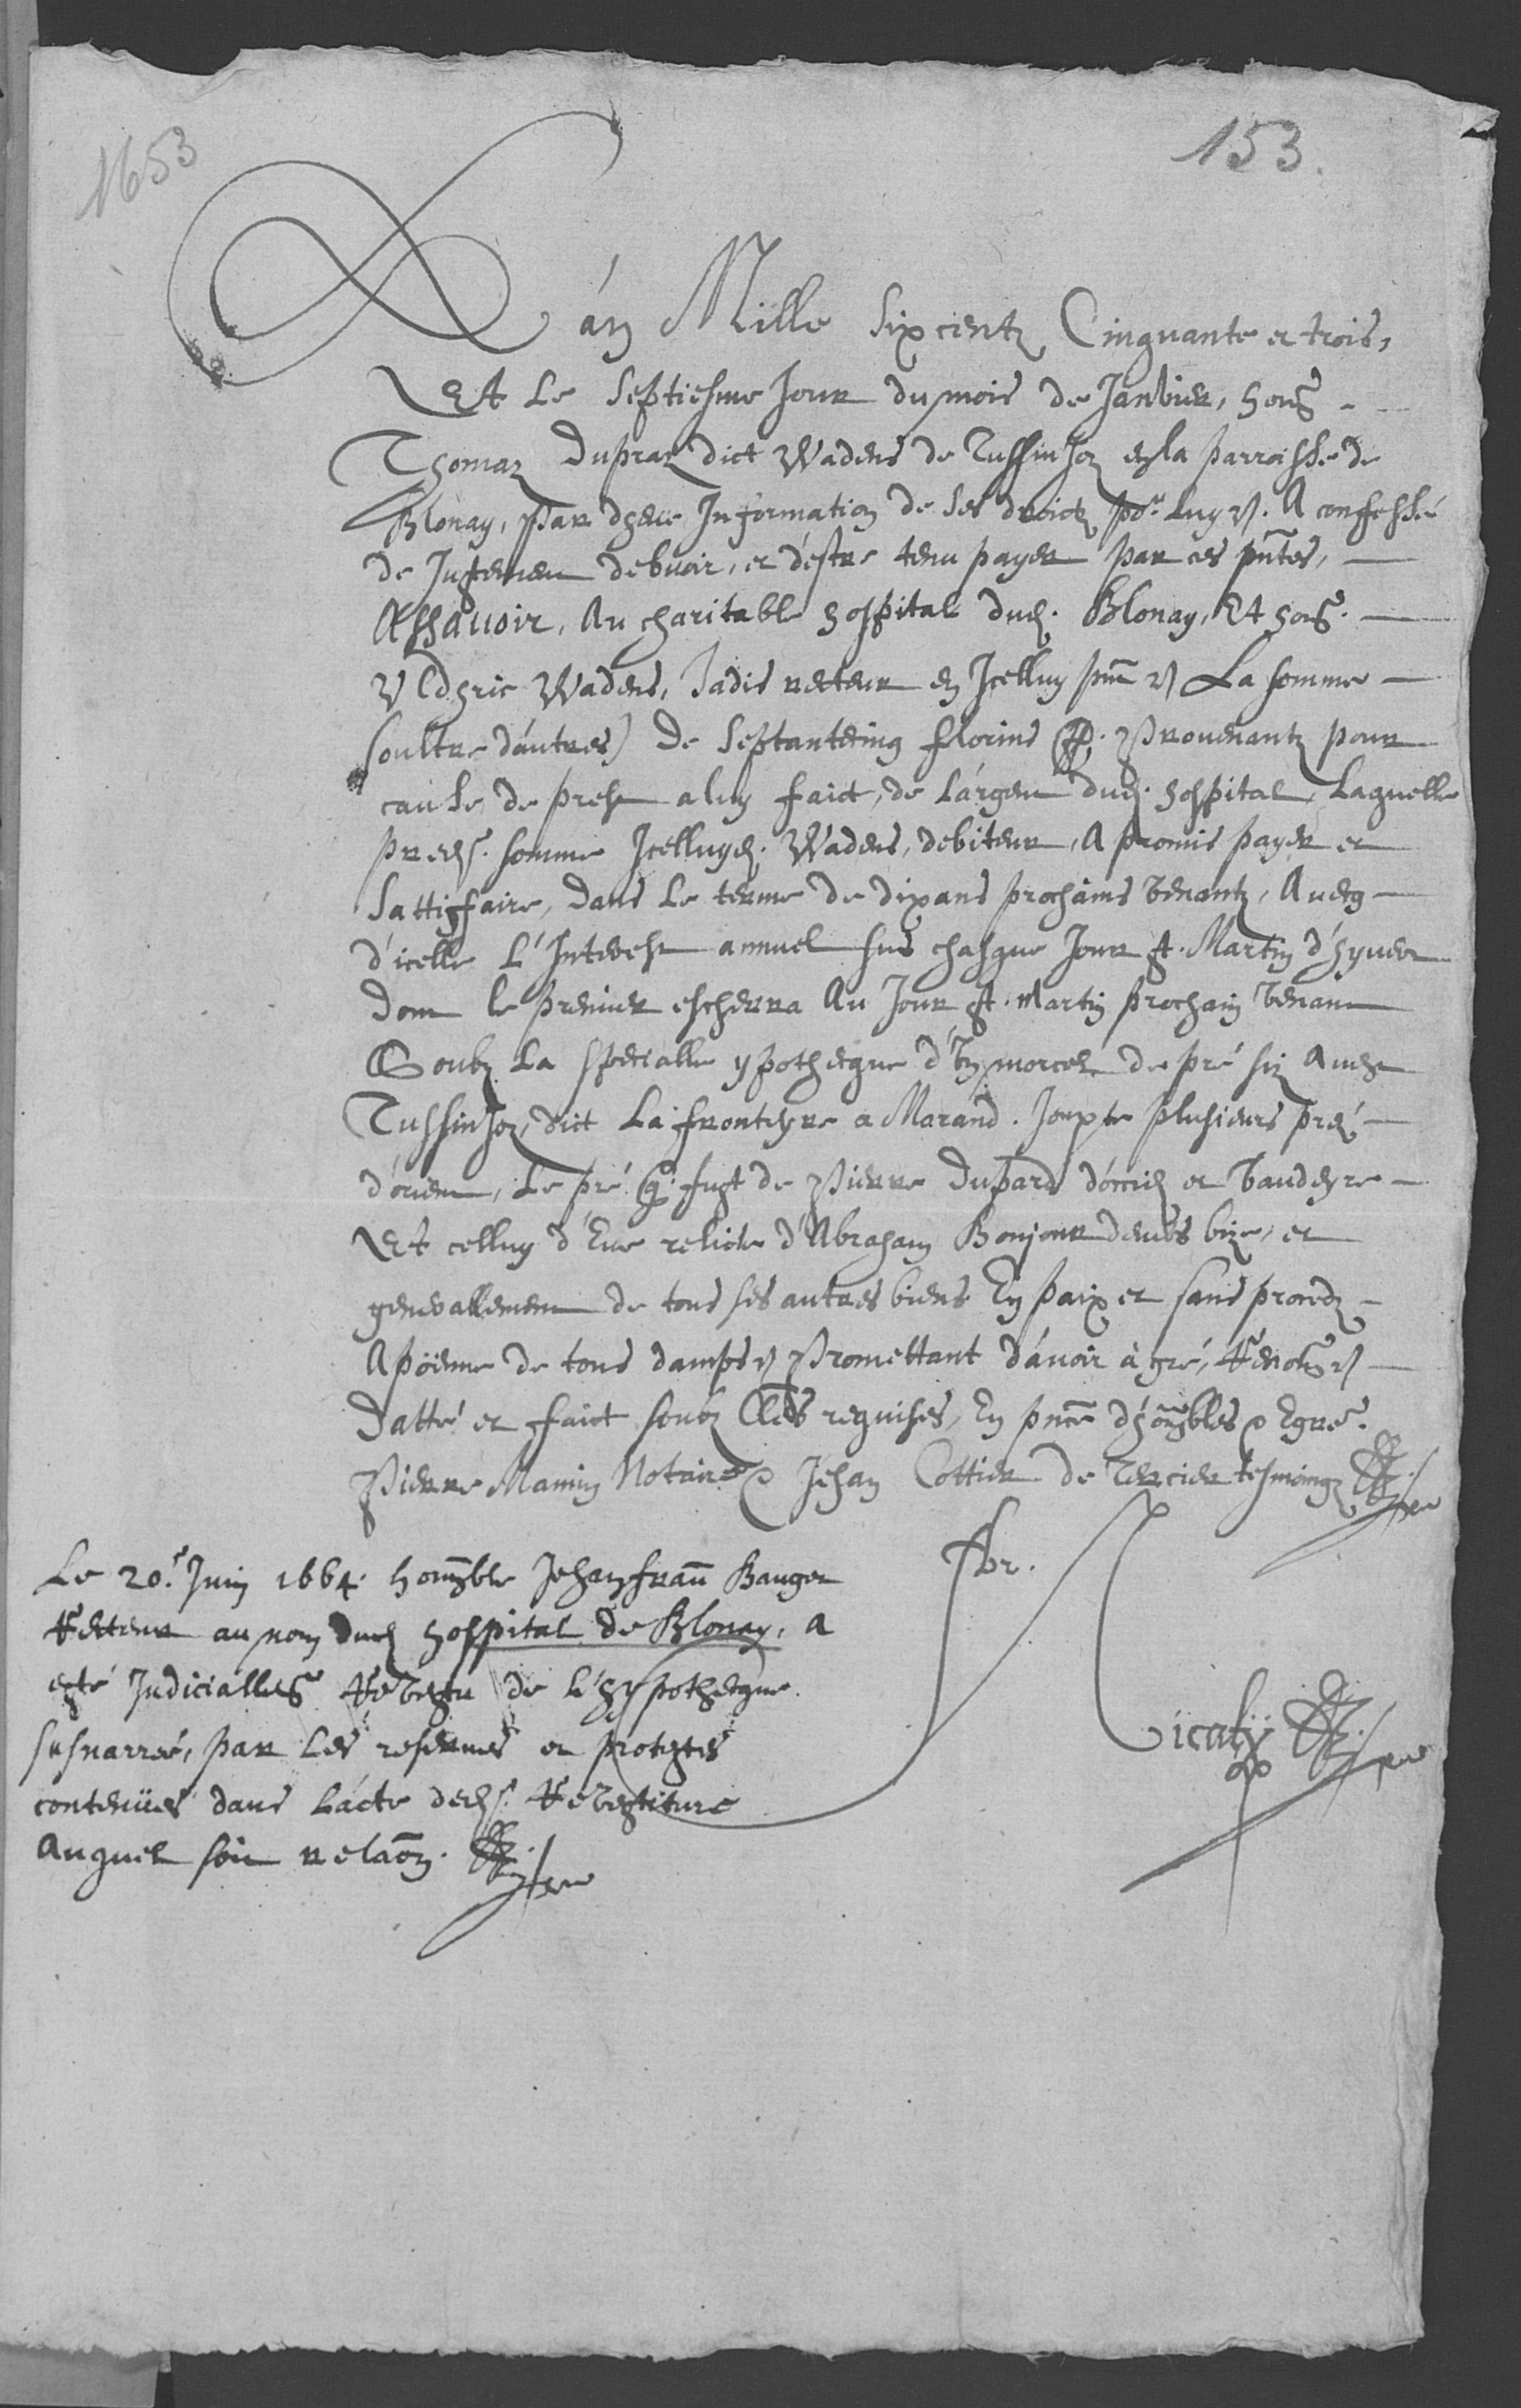 1653
153.
L'án Mille Six centz Cinquante et trois,
Et Le Septiesme Jour du mois de Janvier, hons
Thomaz Dupraz dict Wadens de Tussinjoz en la parroisse de
Blonay, Par dhene Information de ses droictz po.r Luy &. A confessé
de Justemen debvoir, et d'estre tenu payer par ces pntes,
Assavoir, Au charitable hospital dud. Blonay, Et hons.
Uldhric Wadens, Jadis recteur en Icelluy pnt & La somme
(oultre dáutres) De Septantecinq florins pp. Provenantz pour
cause de prest a luy faict, de Lárgent dud. hospital, Laquelle
preds. somme Icelluyd. Wadens, debiteur, A promis payer et
Sattiffaire, dans Le terme de dix ans prochains venantz, Avecq
d'icelle L'Interest annuel sus chasque Jour st. Martin d'hyver
Dont le premier escherra Au Jour st. Martin prochain venant
Soubz La specialle ypothecque d'vn morcel de pré siz Auds
Tussinjoz, dict La fronteyre a Marand. Jouxte plusieurs préz
d'orient, Le pré q. fust de Pierre Dupard d'occid et vaudeyre
Et celluy d'Eve relicte d'Abraham Bonjour devers bize, et
generallement de tous ses autres biens En paix et sans procedz
A poenne de tous damps & Promettant d'ávoir à gré, Renons &
Datté et faict soubz Cles requises, En pnce d'honnbles & Egre.
Pierre Mamin Notaire & Jehan Cottier de Tercier tesmoingz
Le 20.e Juin 1664. honnble Jehan fran Bauger
Recteur au nom dud hospital de Blonay, a
esté Judiciallems Revestu de L'hypothecque
susnarrée, par Les reserves et protestes
contenües dans Lácte deds. Revestiture
Auquel soit relaon.